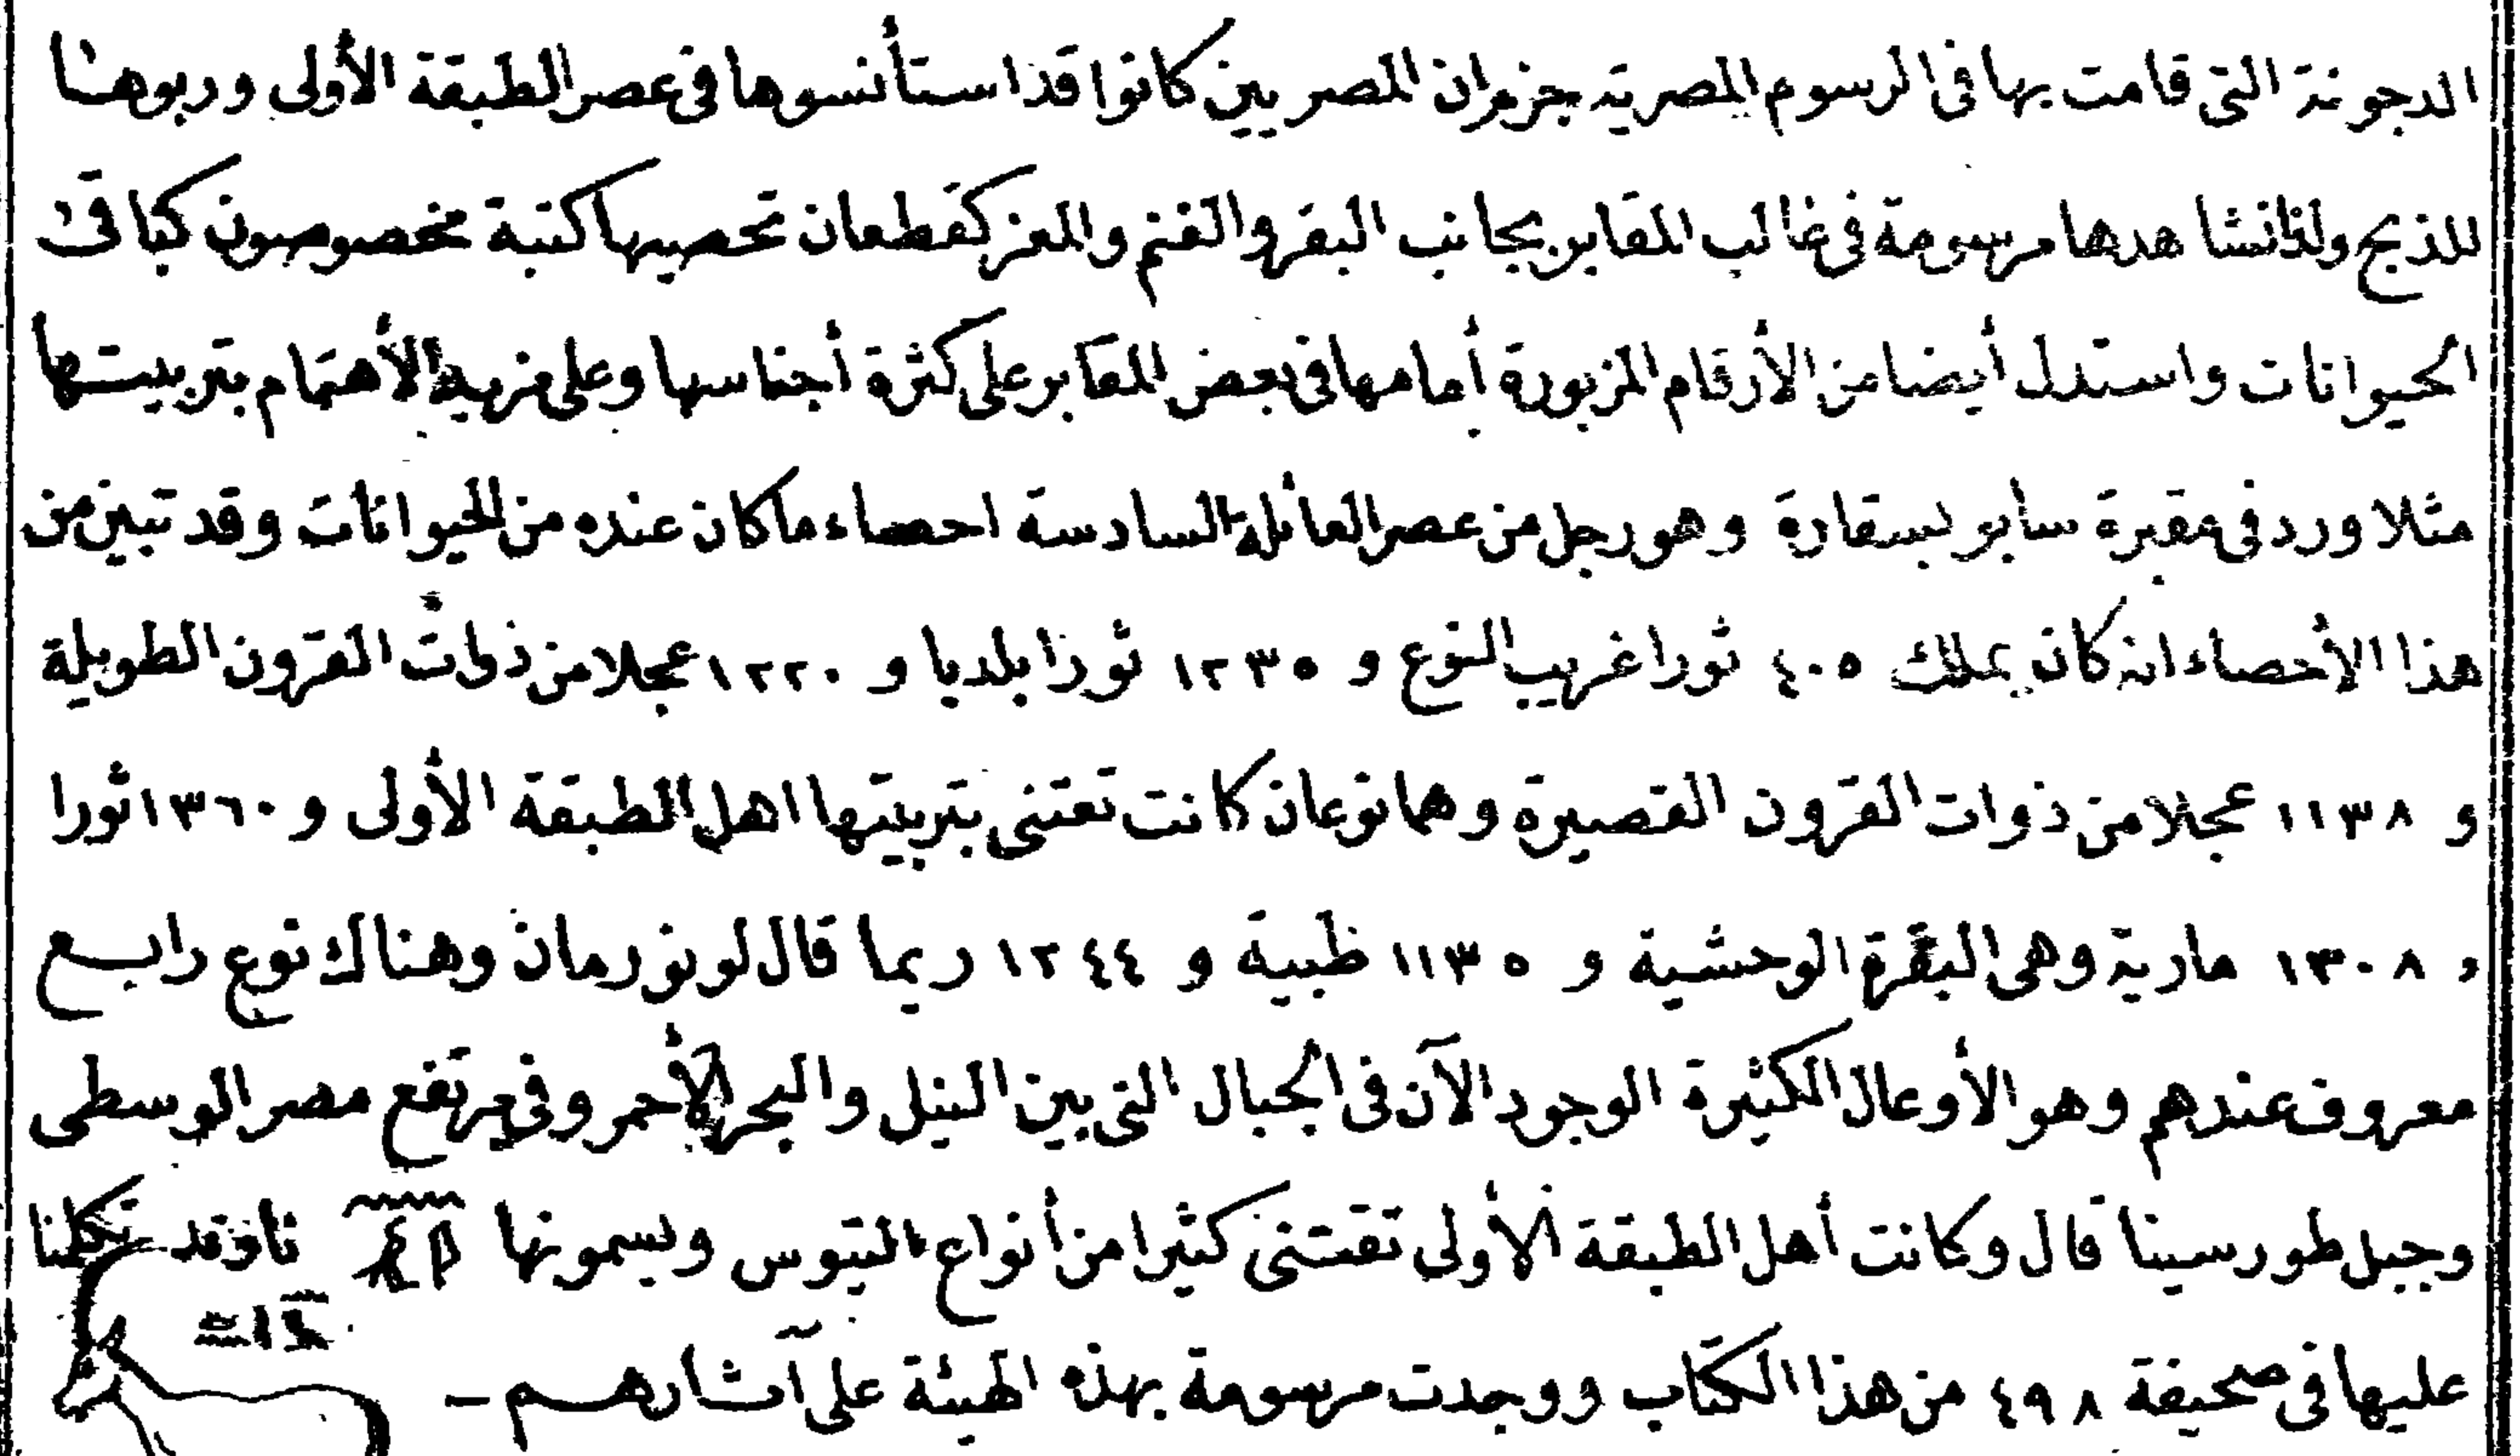 الدجونة التى قامت بها فى الرسوم المصرية يجزم ان المصريين كانوا قد استأنسوها فى عصر الطبقة الأولى وربوها
للذبح ولذا نشاهدها مرسومة فى غالب المقابر بجانب البقر والغنم والمعز كقطعان تحصيها كتبة مخصوصون كباقى
الحيوانات واستدل أيضا من الأرقام المزبورة أمامها فى بعض المقابر على كثرة أجناسها وعلى مزيد الأهتمام بتربيتها
مثلا ورد فى مقبرة سابو بسقارة وهو رجل من عصر العائلة السادسة احصاء ما كان عنده من الحيوانات وقد تبين من
هذا الأحصاء انه كان يملك ٤٠٥ ثورا غريب النوع و ١٢٣٥ ثورا بلديا و ١٢٢٠ عجلا من ذوات القرون الطويلة
و ١١٣٨ عجلا من ذوات القرون القصيرة وهما نوعان كانت تعتنى بتربيتها اهل الطبقة الأولى و ١٣٦٠ ثورا
و ١٣٠٨ مارية وهى البقرة الوحشية و ١١٣٥ ظبية و ١٢٤٤ ريما قال لونورمان وهناك نوع رابع
معروف عندهم وهو الأوعال الكثيرة الوجود الآن فى الجبال التى بين النيل والبحر الأحمر وفى مرتفع مصر الوسطى
وجبل طور سينا قال وكانت أهل الطبقة الأولى تقتنى كثيرا من أنواع التيوس ويسمونها نا وقد تكلمنا
عليها فى صحيفة ٤٩٨ من هذا الكتاب ووجدت مرسومة بهذه الهيئة على آثارهم -